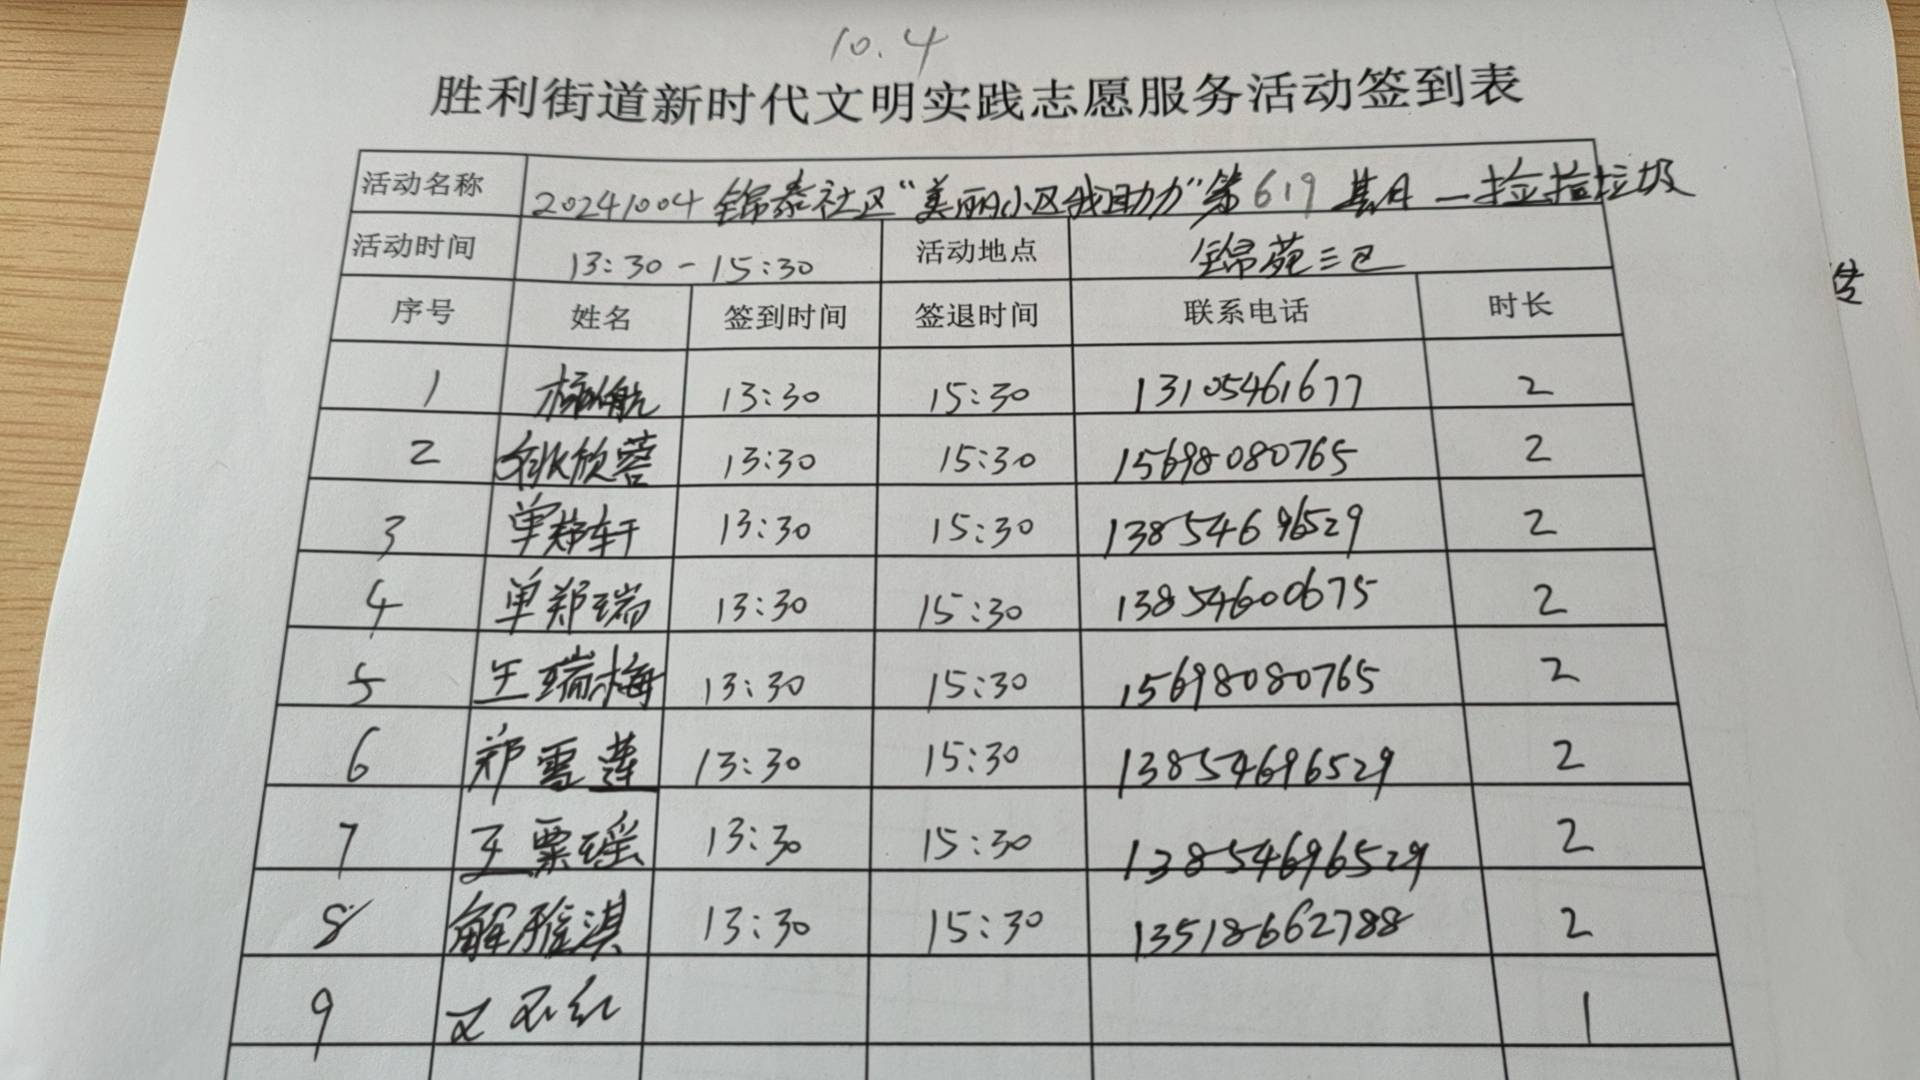 10.4
胜利街道新时代文明实践志愿服务活动签到表
活动名称 20241004锦泰社区“美丽小区我助力”第619期一捡捡垃圾
活动时间 13:30-15:30 活动地点 锦苑三区
序号 姓名 签到时间 签退时间 联系电话 时长
1 13:30 15:30 13105461677 2
2 欣蓉 13:30 15:30 15698080765 2
3 单郑轩 13:30 15:30 13854696529 2
4 单郑瑞 13:30 15:30 13854600675 2
5 王瑞梅 13:30 15:30 15698080765 2
6 郑雪莲 13:30 15:30 13854696529 2
7 王粟瑶 13:30 15:30 13854696529 2
8 解雅淇 13:30 15:30 13518662788 2
9 红 1